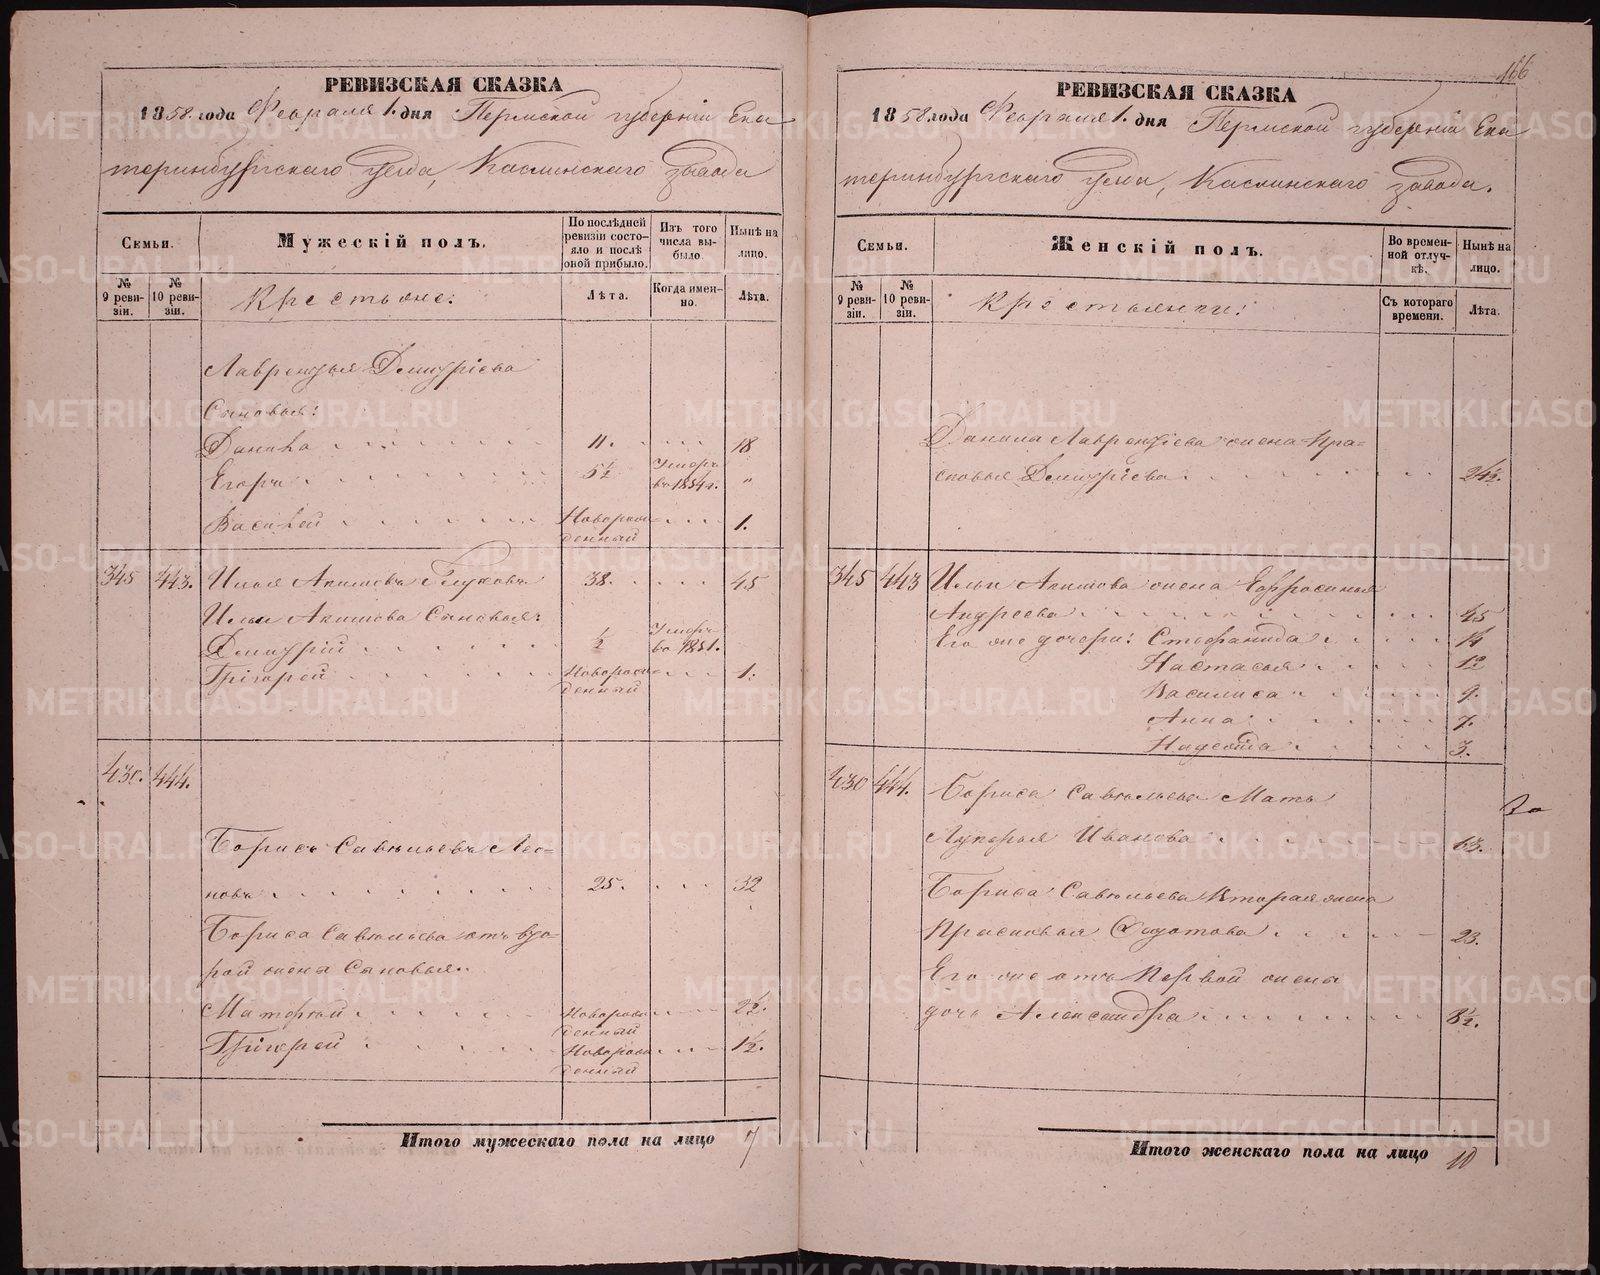 РЕВИЗСКАЯ СКАЗКА
1858 года Февраля 1. дня Пермской губерніи Ека
теринбургскаго уезда, Каслинскаго завода
Семьи.
Мужескій полъ.
По послѣдней ревизіи состояло и послѣ оной прибыло.
Изъ того числа выбыло.
Нынѣ на лицо.
№ 9 ревизіи.
№ 10 ревизіи.
Крестьяне:
Лѣта.
Когда именно.
Лѣта.
Лаврентья Дмитріева
Сыновья:
Данила 11. 18
Егоръ 5½ Умеръ въ 1854 г. "
Василей Новорожденный 1.
345 443. Илья Акимовъ Глуховъ 38. 45
Ильи Акимова Сыновья:
Дмитрій ½ Умеръ въ 1851.
Григорей Новорожденный 1.
430. 444.
Борисъ Савельевъ Лео-
новъ 25. 32
Бориса Савельева отъ вто-
рой жены Сыновья.
Матфей Новорожденный 2½.
Григорей Новорожденный 1½.
Итого мужескаго пола на лицо 7
166
РЕВИЗСКАЯ СКАЗКА
1858 года Февраля 1. дня Пермской губерніи Ека
теринбургскаго уезда, Каслинскаго завода.
Семьи.
Женскій полъ.
Во временной отлучкѣ.
Нынѣ на лицо.
№ 9 ревизіи.
№ 10 ревизіи.
Крестьянки:
Съ котораго времени.
Лѣта.
Данила Лаврентіева жена Пра-
сковья Дмитріева 24½.
345 443 Ильи Акимова жена Ефросинья
Андреева 45
Его же дочери: Стефанида 14
Настасья 12
Василиса 9.
Анна 7.
Надежда 3.
430 444. Бориса Савельева Мать
Лукерья Иванова 63.
Бориса Савельева Вторая жена
Прасковья Федотова 23.
Его же отъ Первой жены
дочь Александра 8½.
Итого женскаго пола на лицо 10
METRIKI.GASO-URAL.RU